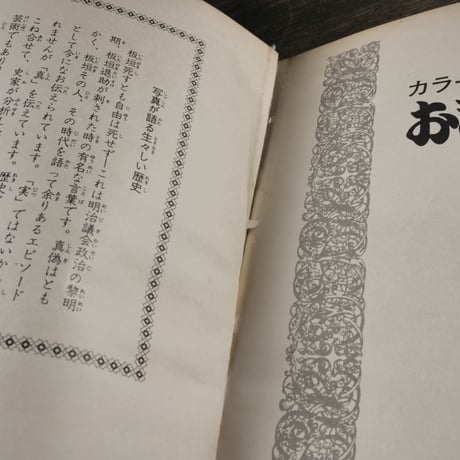 写真が語る生々しい歴史
板垣死すとも自由は死せず―これは明治議会政治の黎明
期、板垣退助が刺された時の有名な言葉です。真偽はとも
かく、板垣その人、その時代を語って余りあるエピソード
として今になお伝えられています。「実」ではないかもし
れませんが「真」を伝えています。歴史
こね合せて、史実が分析
芸術でもあり
カラー
お